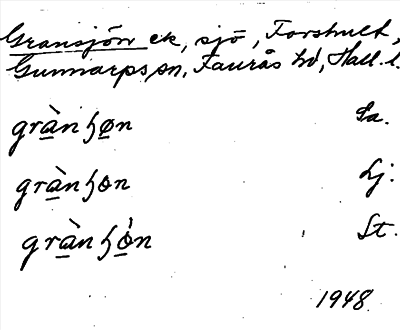 Gransjön ek, sjö, Forshult,
Gunnarps sn, Faurås hd, Hall. l.
grànʃøn Sa.
grànʃon Lj.
grànʃø̀n St.
1948